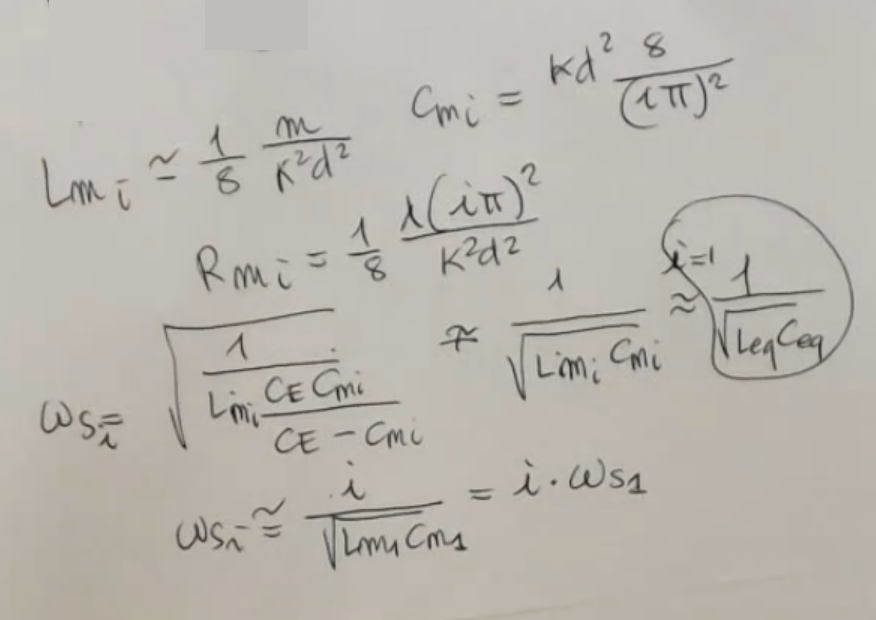 Lmi ≃ 1/8 m/(K²d²)    Cmi = Kd² 8/(iπ)²
Rmi = 1/8 λ(iπ)²/(K²d²)
ωsi = √(1/(Lmi (CE Cmi)/(CE - Cmi))) ≈ 1/√(Lmi Cmi) ≈ i=1 1/√(Leq Ceq)
ωsi ≅ i/√(Lm1 Cm1) = i · ωs1